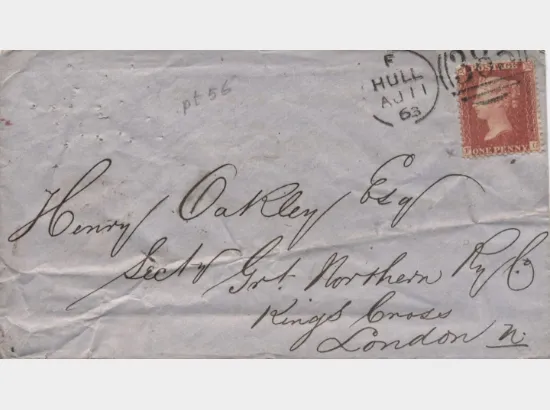 F
HULL
AU 11
63
383
POSTAGE
ONE PENNY
pt 56
Henry Oakley Esq
Secty Grt. Northern Ry Co
Kings Cross
London N.